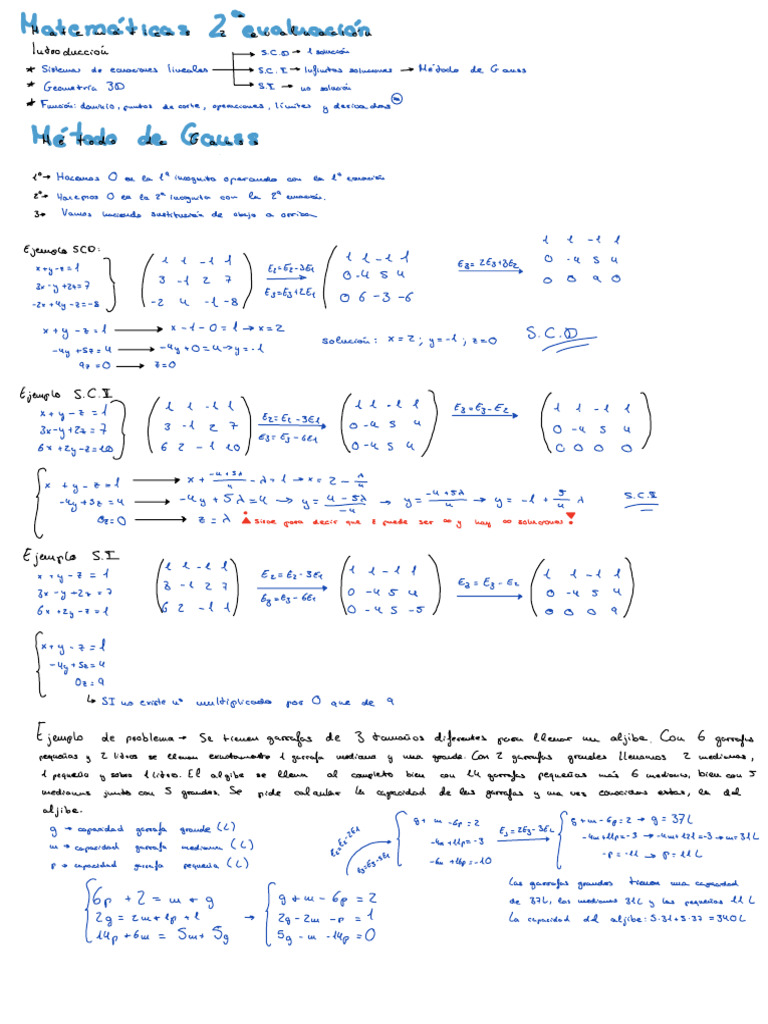 Matemáticas 2ª evaluación
Introducción
* Sistemas de ecuaciones lineales → S.C.D → 1 solución
→ S.C.I → Infinitas soluciones → Método de Gauss
→ S.I → no solución
* Geometría 3D
* Función: dominio, puntos de corte, operaciones, límites y derivadas
Método de Gauss
1º → Hacemos 0 en la 1ª incógnita operando con la 1ª ecuación
2º → Hacemos 0 en la 2ª incógnita con la 2ª ecuación.
3 → Vamos haciendo sustitución de abajo a arriba
Ejemplo SCD:
x+y-z=1
3x-y+2z=7
-2x+4y-z=-8
1 1 -1 1
3 -1 2 7
-2 4 -1 -8
E2=E2-3E1
E3=E3+2E1
1 1 -1 1
0 -4 5 4
0 6 -3 -6
E3=2E3+3E2
1 1 -1 1
0 -4 5 4
0 0 9 0
x+y-z=1 → x-1-0=1 → x=2
-4y+5z=4 → -4y+0=4 → y=-1
9z=0 → z=0
solución: x=2; y=-1; z=0
S.C.D
Ejemplo S.C.I
x+y-z=1
3x-y+2z=7
6x+2y-z=10
1 1 -1 1
3 -1 2 7
6 2 -1 10
E2=E2-3E1
E3=E3-6E1
1 1 -1 1
0 -4 5 4
0 -4 5 4
E3=E3-E2
1 1 -1 1
0 -4 5 4
0 0 0 0
x+y-z=1 → x+ -4+5λ/4 -λ=1 → x=2-λ/4
-4y+5z=4 → -4y+5λ=4 → y=4-5λ/-4 → y=-4+5λ/4 → y=-1+5/4 λ
0z=0 → z=λ sirve para decir que z puede ser ∞ y hay ∞ soluciones!
S.C.I
Ejemplo S.I
x+y-z=1
3x-y+2z=7
6x+2y-z=1
1 1 -1 1
3 -1 2 7
6 2 -1 1
E2=E2-3E1
E3=E3-6E1
1 1 -1 1
0 -4 5 4
0 -4 5 -5
E3=E3-E2
1 1 -1 1
0 -4 5 4
0 0 0 9
x+y-z=1
-4y+5z=4
0z=9
↳ SI no existe nº multiplicado por 0 que de 9
Ejemplo de problema → Se tienen garrafas de 3 tamaños diferentes para llenar un aljibe. Con 6 garrafas
pequeñas y 2 litros se llenan exactamente 1 garrafa mediana y una grande. Con 2 garrafas grandes llenamos 2 medianas,
1 pequeña y sobra 1 litro. El aljibe se llena al completo bien con 14 garrafas pequeñas más 6 medianas, bien con 5
medianas junto con 5 grandes. Se pide calcular la capacidad de las garrafas y una vez conocidas estas, la del
aljibe.
g → capacidad garrafa grande (L)
m → capacidad garrafa mediana (L)
p → capacidad garrafa pequeña (L)
6p+2=m+g
2g=2m+1p+1
14p+6m=5m+5g
→
g+m-6p=2
2g-2m-p=1
5g-m-14p=0
E2=E2-2E1
E3=E3-5E1
g+m-6p=2
-4m+11p=-3
-6m+16p=-10
E3=2E3-3E2
g+m-6p=2 → g=37L
-4m+11p=-3 → -4m+121=-3 → m=31L
-p=-11 → p=11L
Las garrafas grandes tienen una capacidad
de 37L, las medianas 31L y las pequeñas 11L
La capacidad del aljibe: 5·31+5·37=340L